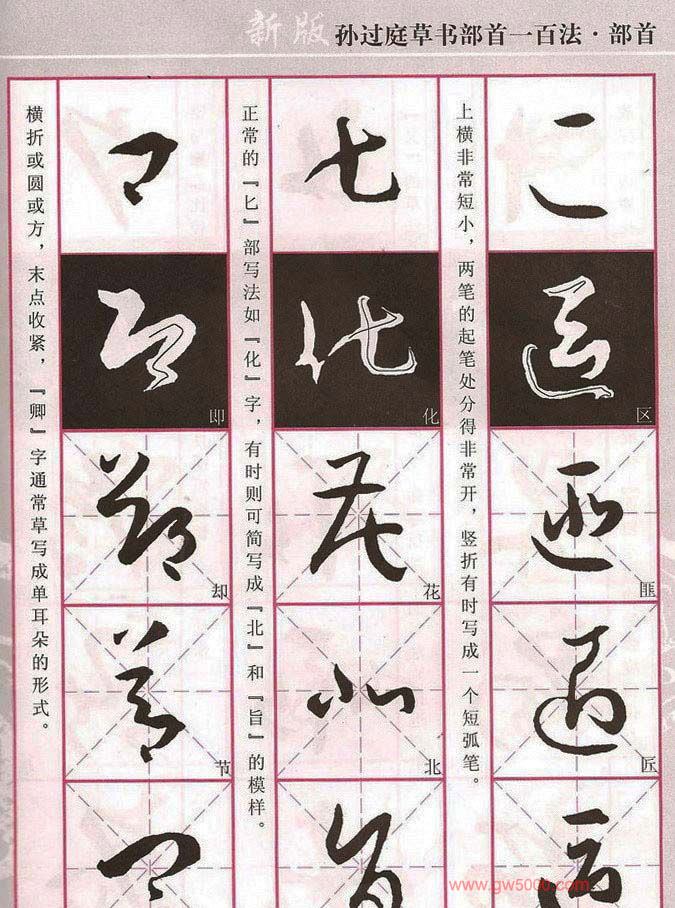 新版 孙过庭草书部首一百法·部首
上横非常短小，两笔的起笔处分得非常开，竖折有时写成一个短弧笔。
区
匪
匠
正常的『匕』部写法如『化』字，有时则可简写成『北』和『旨』的模样。
化
花
北
横折或圆或方，末点收紧，『卿』字通常草写成单耳朵的形式。
即
却
节
www.gw5000.com